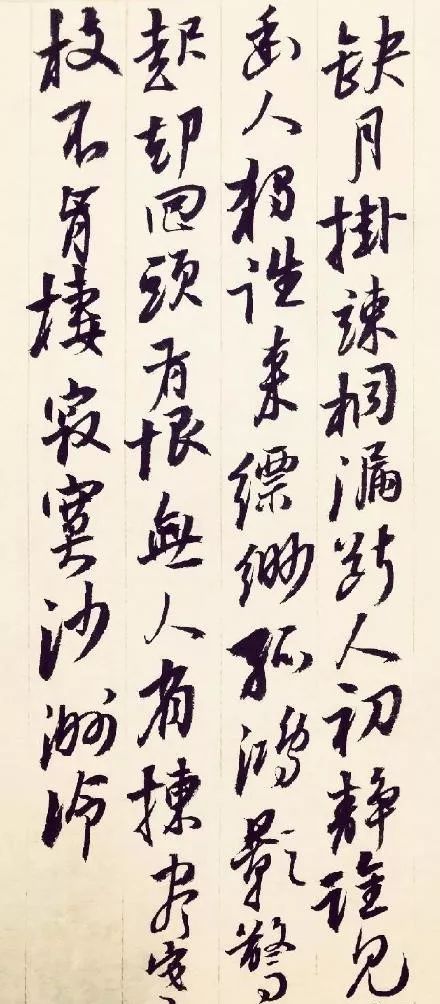 缺月掛疎桐漏断人初静誰見
幽人獨往來縹緲孤鴻影驚
起却回頭有恨無人省揀盡寒
枝不肯棲寂寞沙洲冷